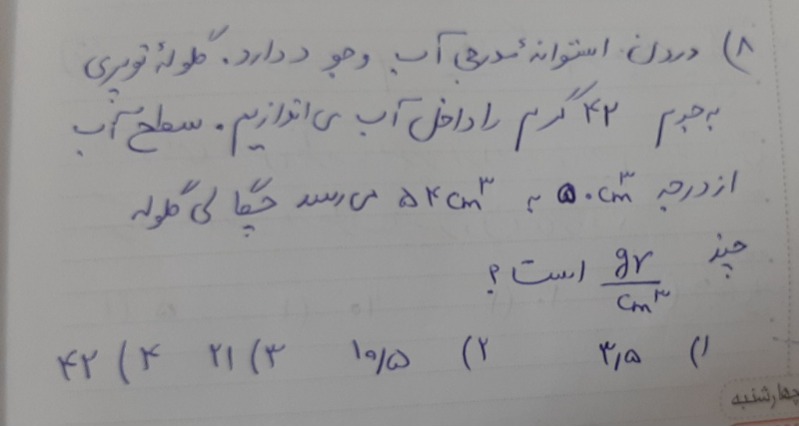 ۸) درون استوانهٔ مدرجی آب وجود دارد. گلولهٔ توپری
به جرم ۴۲ گرم را داخل آب می اندازیم. سطح آب
از درجه ۵۰cm³ به ۵۴cm³ می رسد چگالی گلوله
چند gr/cm³ است؟
۱) ۳٫۵ ۲) ۱۰/۵ ۳) ۲۱ ۴) ۴۲
چهارشنبه